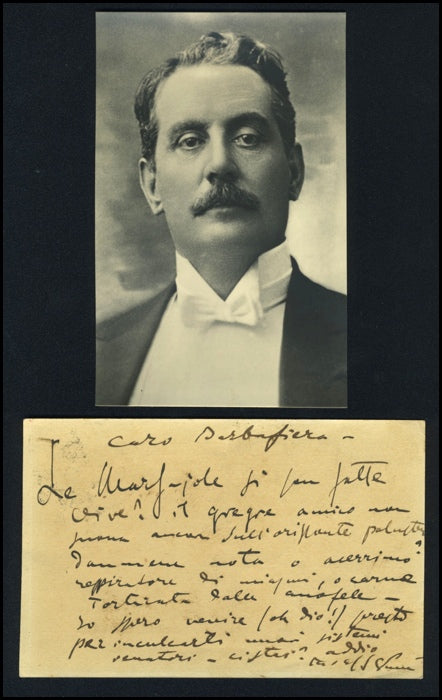 caro Barbafiera -
Le Marsajole si son fatte
vive? il gregge amico non
suona ancora sull'orizzonte palustre
Dammene nota o acerrimo
respiratore di miasmi, o carne
Torturata dalle anofele -
Io spero venire (oh dio!) presto
per inculcarti nuovi sistemi
venatori - addio